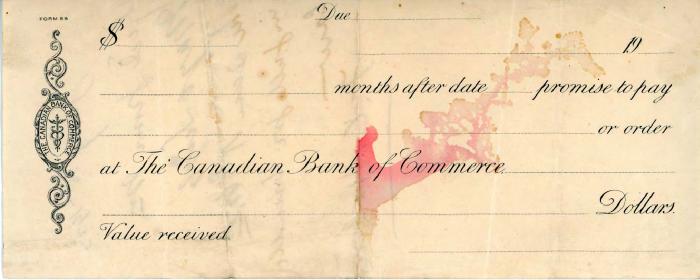 FORM 86
Due
$ 19
months after date promise to pay
or order
at The Canadian Bank of Commerce
Dollars.
Value received
THE CANADIAN BANK OF COMMERCE